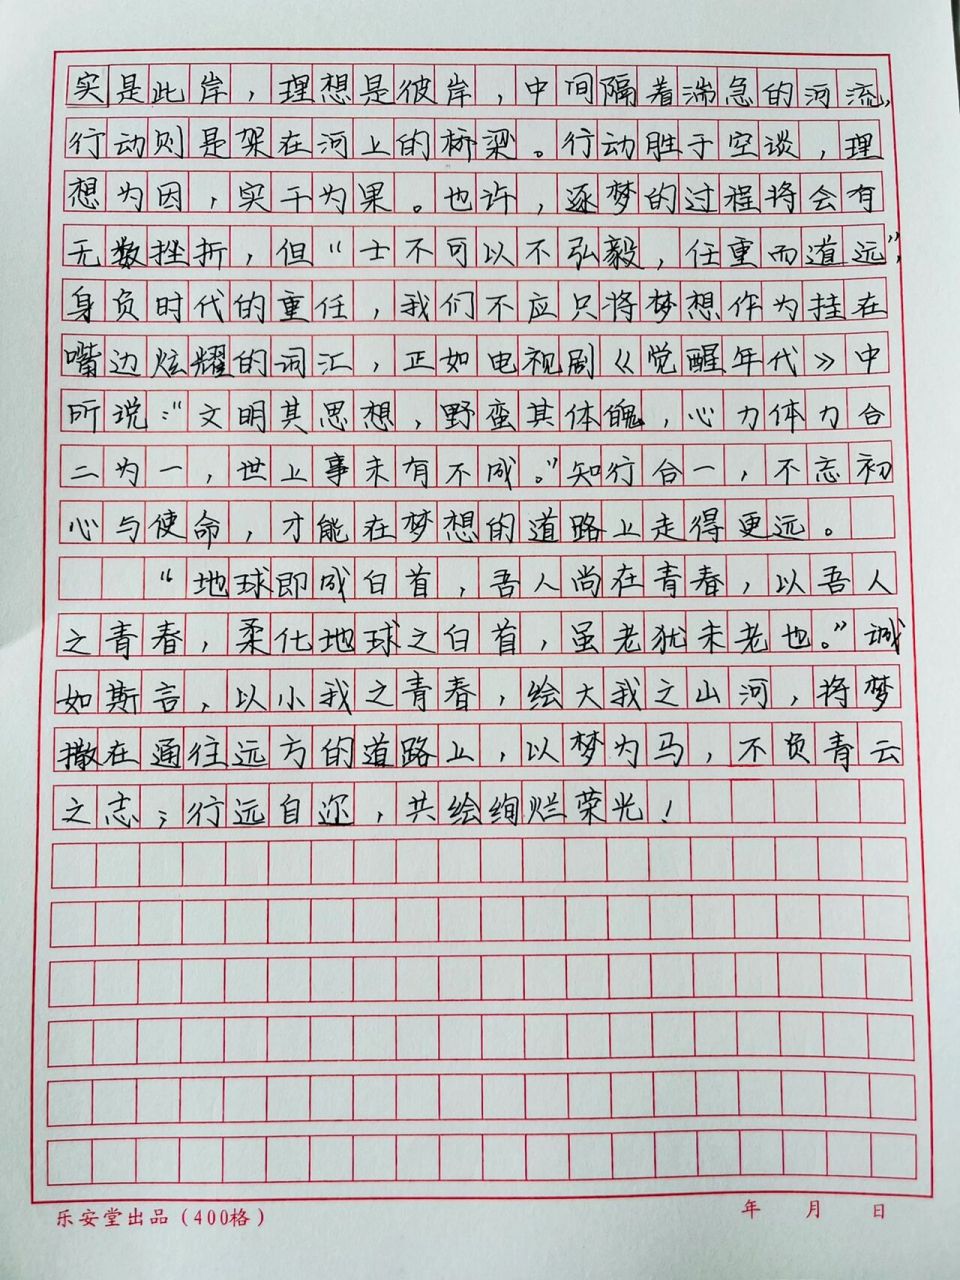 实是此岸，理想是彼岸，中间隔着湍急的河流，
行动则是架在河上的桥梁。行动胜于空谈，理
想为因，实干为果。也许，逐梦的过程将会有
无数挫折，但“士不可以不弘毅，任重而道远”，
身负时代的重任，我们不应只将梦想作为挂在
嘴边炫耀的词汇，正如电视剧《觉醒年代》中
所说：“文明其思想，野蛮其体魄，心力体力合
二为一，世上事未有不成。”知行合一，不忘初
心与使命，才能在梦想的道路上走得更远。
“地球即成白首，吾人尚在青春，以吾人
之青春，柔化地球之白首，虽老犹未老也。”诚
如斯言，以小我之青春，绘大我之山河，将梦
撒在通往远方的道路上，以梦为马，不负青云
之志；行远自迩，共绘绚烂荣光！
乐安堂出品（400格） 年 月 日